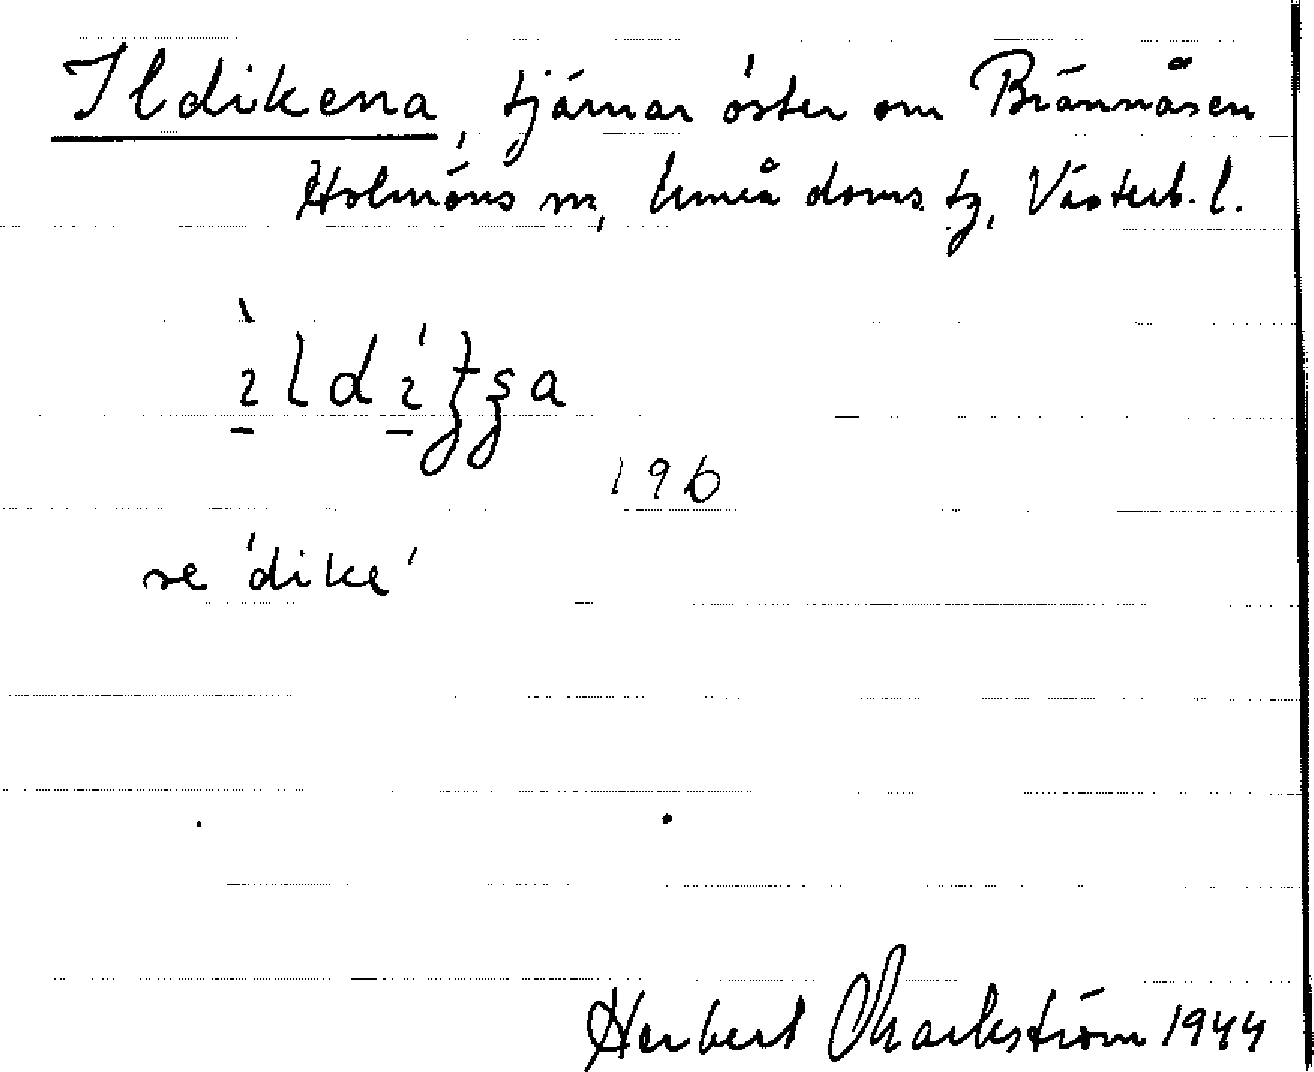 Ildikena, tjärnar öster om Brännåsen
Holmöns sn, Umeå doms. tg, Västerb. l.
196
se 'dike'
Herbert Markström 1944